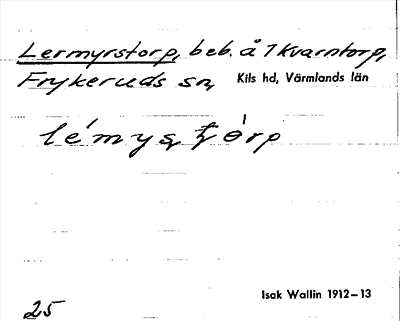 Lermyrstorp, beb. å 1 Kvarntorp,
Frykeruds sn, Kils hd, Värmlands län
Isak Wallin 1912–13
25